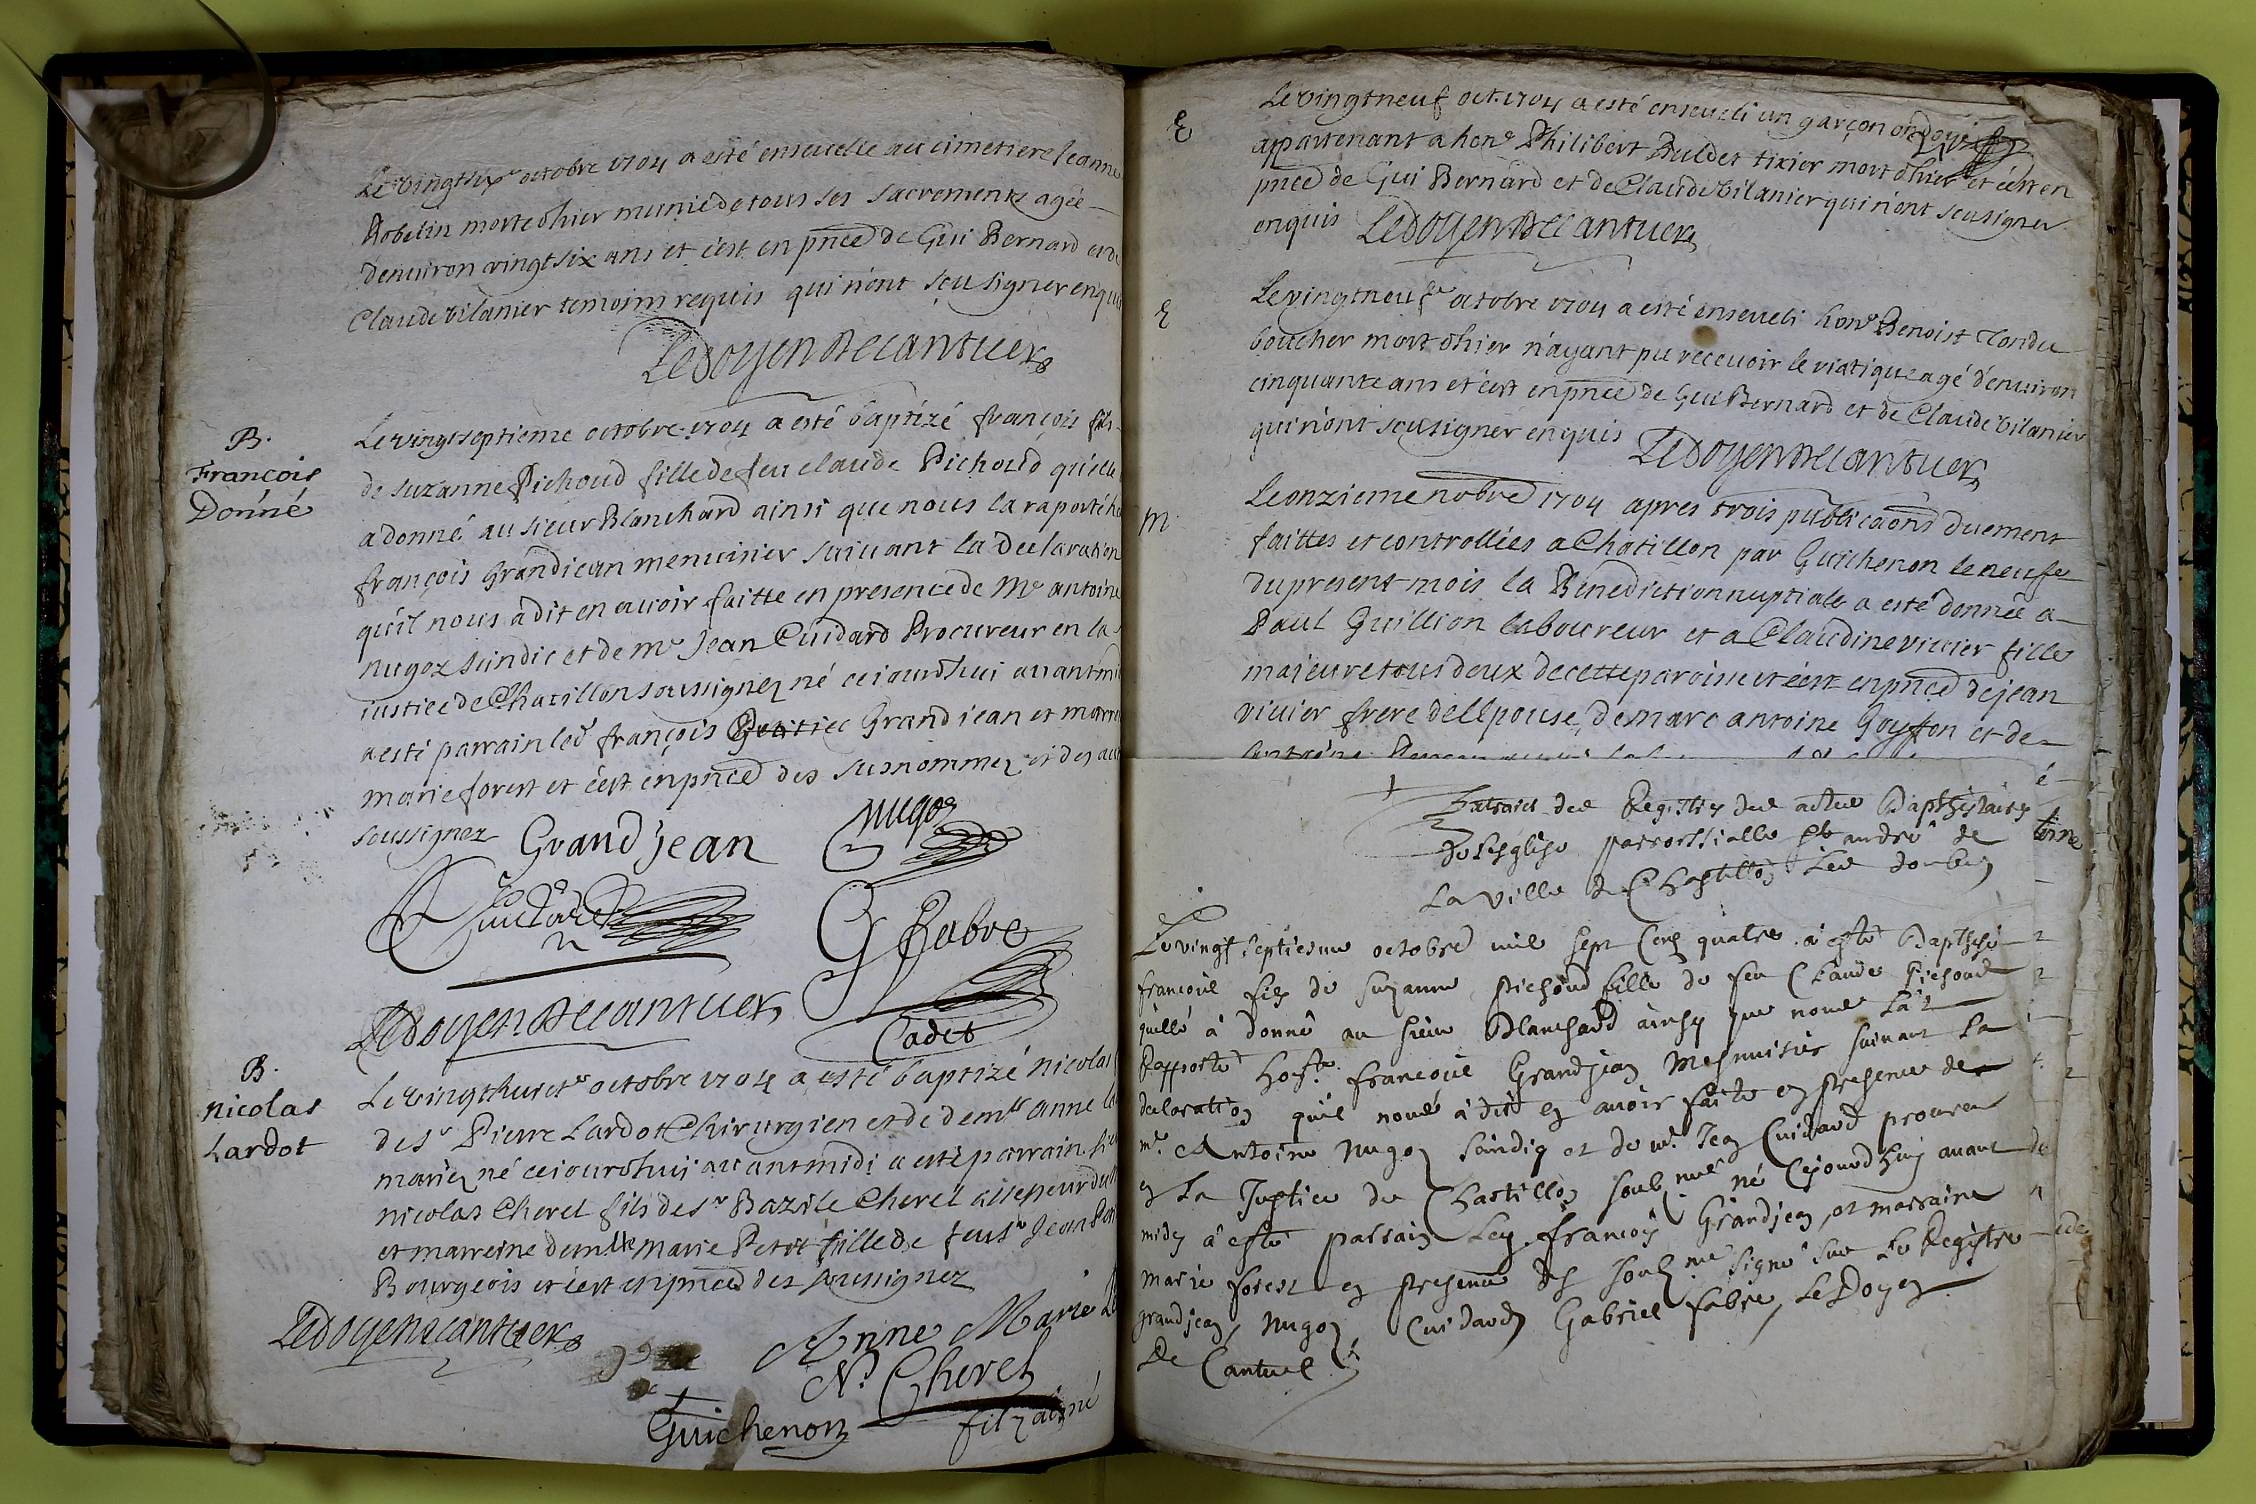 Le vingtsix.e octobre 1704 a esté enseuelie au cimetiere Jeanne
Robelin morte d'hier munie de tous ses sacrements agée
d'enuiron vingt six ans et c'est en pnce de Gui Bernard et de
Claude Vilanier temoins requis qui n'ont sçu signer enquis
Ledoyen DeCantuers
B.
François
Donné
Le vingtseptieme octobre 1704 a esté baptizé françois fils
de suzanne Pichoud fille de feu claude Pichoud qu'elle
a donné au sieur Blanchard ainsi que nous la raporté ho
françois Grandiean menuisier suiuant la Declaration
qu'il nous a dit en auoir faitte en presence de Me antoine
nugoz sindic et de me Jean Cuidard Procureur en la
iustice de Chatillon soussignez né ceiourd'hui auant mi
a esté parrain led françois Grandiean et marre
marie forest et c'est en pnce des susnommez et des au
soussignez
Grandjean
nugoz
Cuidard
G Fabre
Ledoyen DeCantuers
Cadet
B.
nicolas
Lardot
Le vingthuict.e octobre 1704 a esté baptizé nicolas
de Sr Pierre Lardot Chirurgien et de demlle anne
mariez né ceiourd'huy auant midi a esté parrain
nicolas Cheret fils de Sr Bazile Cheret
et marreine demlle marie Petit fille de feu Sr Jean
Bourgeois et c'est en pnce des soussignez
Ledoyen DeCantuers
Anne Marie
N. Cheret
Guichenon
filz aisné
E
Le vingtneuf oct. 1704 a esté enseueli un garçon ondoyé
appartenant a hone Philibert Buldet tixier mort d'hier et c'est en
pnce de Gui Bernard et de Claude Vilanier qui n'ont sceu signer
enquis Ledoyen DeCantuers
E
Le vingtneuf.e octobre 1704 a esté enseueli hone Benoist Tondu
boucher mort d'hier n'ayant pu receuoir le viatique agé d'enuiron
cinquante ans et c'est en pnce de Gui Bernard et de Claude Vilanier
qui n'ont sceu signer enquis Ledoyen DeCantuers
m
Le onzieme nobre 1704 apres trois publicaons duement
faittes et controllées a Chatillon par Guichenon le neufe
du present mois la Benediction nuptiale a esté donnée a
Paul Guillion laboureur et a Claudine viuier fille
majeure tous deux de cette paroisse et c'est en pnce de jean
viuier frere de l'Epouse, de marc antoine Goyffon et de
Extraict des Registres des actes Baptistaires
de Lesglise parroissialle St andré de
La Ville de Chastillon Les dombes
Le vingt septiesme octobre mil sept Cens quatre a esté Baptisé
francois fils de suzanne pichoud fille de feu Claude Pichoud
quelle à donné au sieur Blanchard ainsy que nous la
Rapporté hoste francois Grandjean Menuisier suiuant La
declaration quil nous à dit en auoir faite en presence de
me Antoine Nugoz saindiq et de me Jean Cuidard procureur
en La Justice de Chastillon soubsnés né Cejourdhuy auant
midy à esté parrain Led francois Grandjean, et marraine
Marie forest en presence des soubsnés signé sur Le Registre
grandjean, Nugoz, Cuidard, Gabriel fabre, Le Doyen
De Cantuel